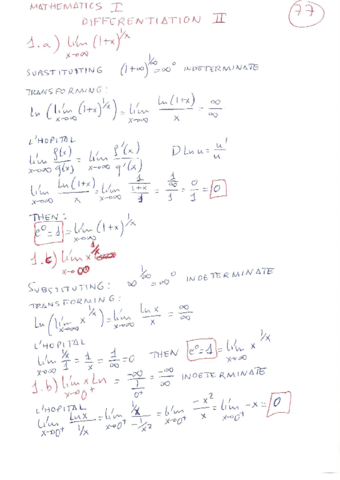 MATHEMATICS I
DIFFERENTIATION II
77
1.a) lim x→∞ (1+x)^1/x
SUBSTITUTING (1+∞)^1/∞ = ∞^0 INDETERMINATE
TRANSFORMING:
ln (lim x→∞ (1+x)^1/x) = lim x→∞ ln(1+x)/x = ∞/∞
L'HOPITAL
lim x→∞ f(x)/g(x) = lim x→∞ f'(x)/g'(x) D ln u = u'/u
lim x→∞ ln(1+x)/x = lim x→∞ (1/(1+x))/1 = (1/∞)/1 = 0/1 = 0
THEN:
e^0 = 1 = lim x→∞ (1+x)^1/x
1.c) lim x→∞ x^1/x
SUBSTITUTING: ∞^1/∞ = ∞^0 INDETERMINATE
TRANSFORMING:
ln (lim x→∞ x^1/x) = lim x→∞ ln x/x = ∞/∞
L'HOPITAL
lim x→∞ (1/x)/1 = 1/x = 1/∞ = 0 THEN e^0 = 1 = lim x→∞ x^1/x
1.b) lim x→0+ x Ln = -∞/(1/0+) = -∞/∞ INDETERMINATE
L'HOPITAL
lim x→0+ ln x/(1/x) = lim x→0+ (1/x)/(-1/x²) = lim x→0+ -x²/x = lim x→0+ -x = 0